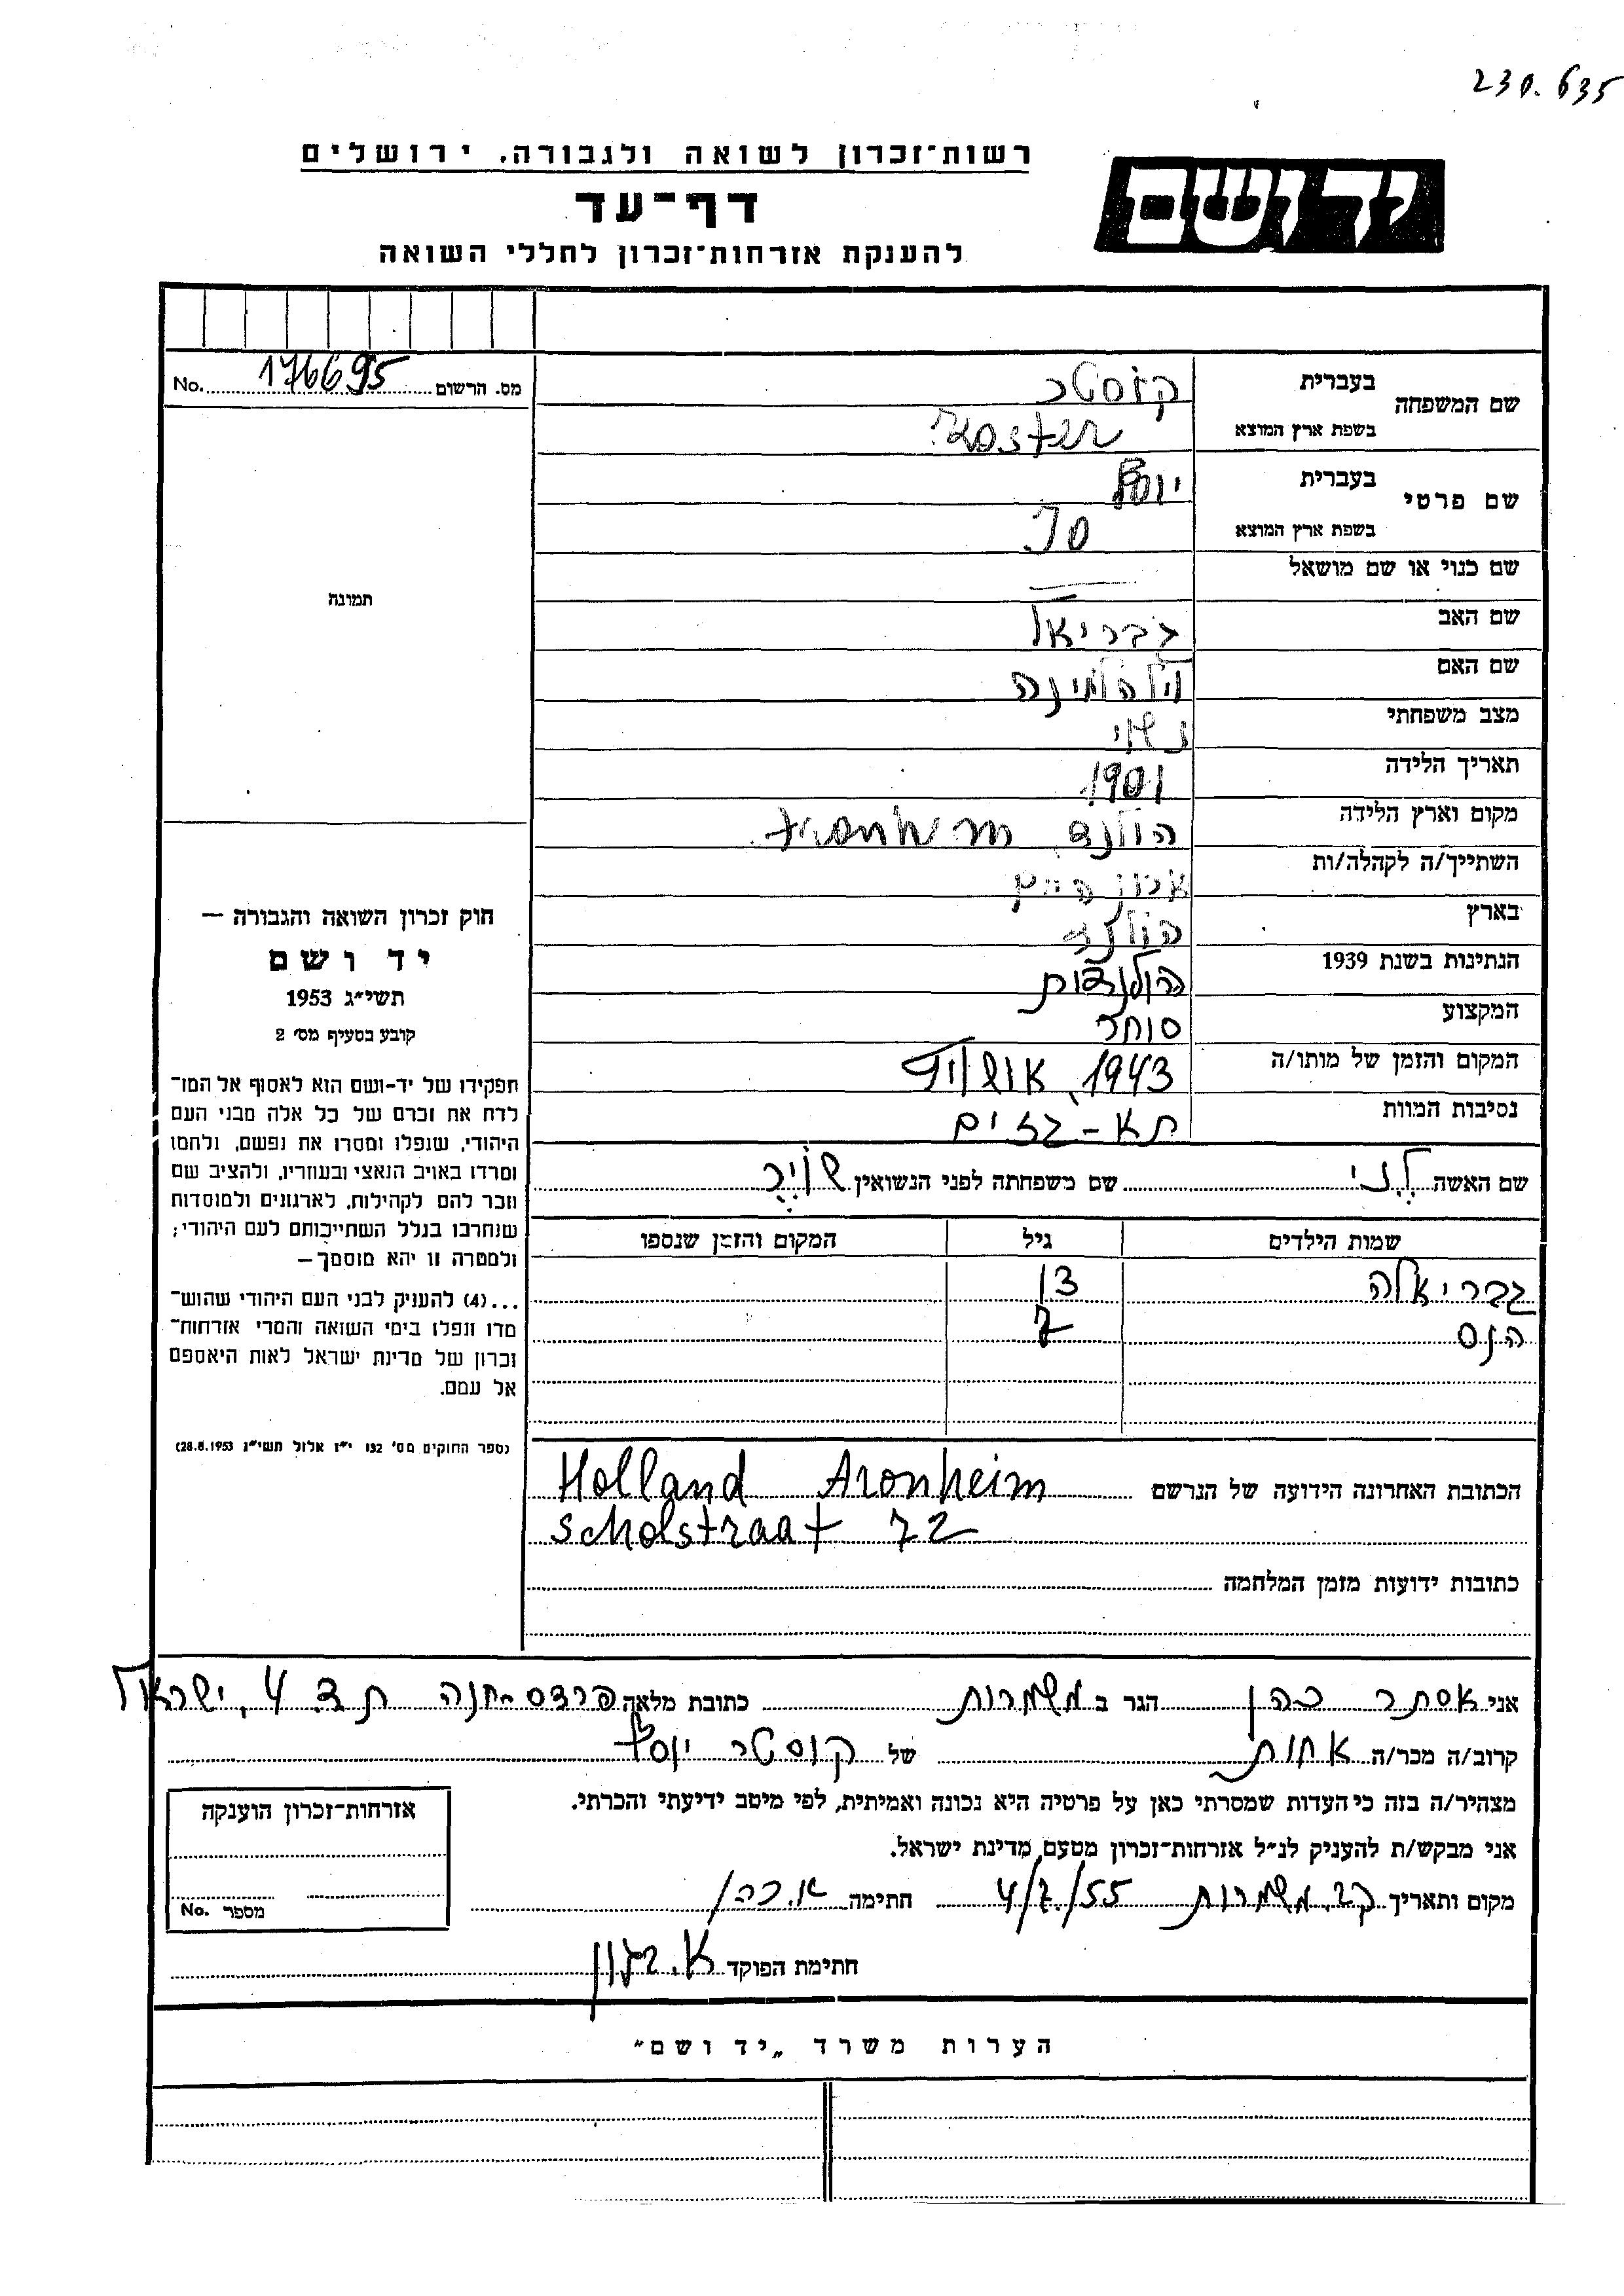 230.635
רשות־זכרון לשואה ולגבורה. ירושלים
יד ושם
דף־עד
להענקת אזרחות־זכרון לחללי השואה
מס. הרשום 176695 No.
שם המשפחה
בעברית קוסטר
בשפת ארץ המוצא Koster
שם פרטי
בעברית יוסף
בשפת ארץ המוצא Jo.
שם כנוי או שם מושאל —
שם האב גבריאל
שם האם וילהלמינה
מצב משפחתי נשוי
תאריך הלידה 1901
מקום וארץ הלידה הולנד
השתייך/ה לקהלה/ות
בארץ הולנד
הנתינות בשנת 1939 הולנדית
המקצוע סוחר
המקום והזמן של מותו/ה 1943, אושויץ
נסיבות המוות תא - גזים
שם האשה לני שם משפחתה לפני הנשואין
שמות הילדים גיל המקום והזמן שנספו
גבריאלה 13
הנס 7
הכתובת האחרונה הידועה של הנרשם Holland Aronheim
scholstraat 72
כתובות ידועות מזמן המלחמה
תמונה
חוק זכרון השואה והגבורה —
יד ושם
תשי״ג 1953
קובע בסעיף מס׳ 2
תפקידו של יד-ושם הוא לאסוף אל המו־
לדת את זכרם של כל אלה מבני העם
היהודי, שנפלו ומסרו את נפשם, נלחמו
ומרדו באויב הנאצי ובעוזריו, ולהציב שם
וזכר להם לקהילות, לארגונים ולמוסדות
שנחרבו בגלל השתייכותם לעם היהודי;
ולמטרה זו יהא מוסמך—
...(4) להעניק לבני העם היהודי שהוש־
מדו ונפלו בימי השואה והמרי אזרחות־
זכרון של מדינת ישראל לאות היאספם
אל עמם.
(ספר החוקים מס׳ 132 י״ז אלול תשי״ג 28.8.1953)
אני אסתר כהן הגר ב משמרות כתובת מלאה פרדס-חנה ת.ד. 4, ישראל
קרוב/ה מכר/ה אחות של קוסטר יוסף
מצהיר/ה בזה כי העדות שמסרתי כאן על פרטיה היא נכונה ואמיתית, לפי מיטב ידיעתי והכרתי.
אני מבקש/ת להעניק לנ״ל אזרחות־זכרון מטעם מדינת ישראל.
מקום ותאריך קב. משמרות 4/7/55 חתימה א. כהן
חתימת הפוקד
אזרחות־זכרון הוענקה
מספר No.
הערות משרד „יד ושם״